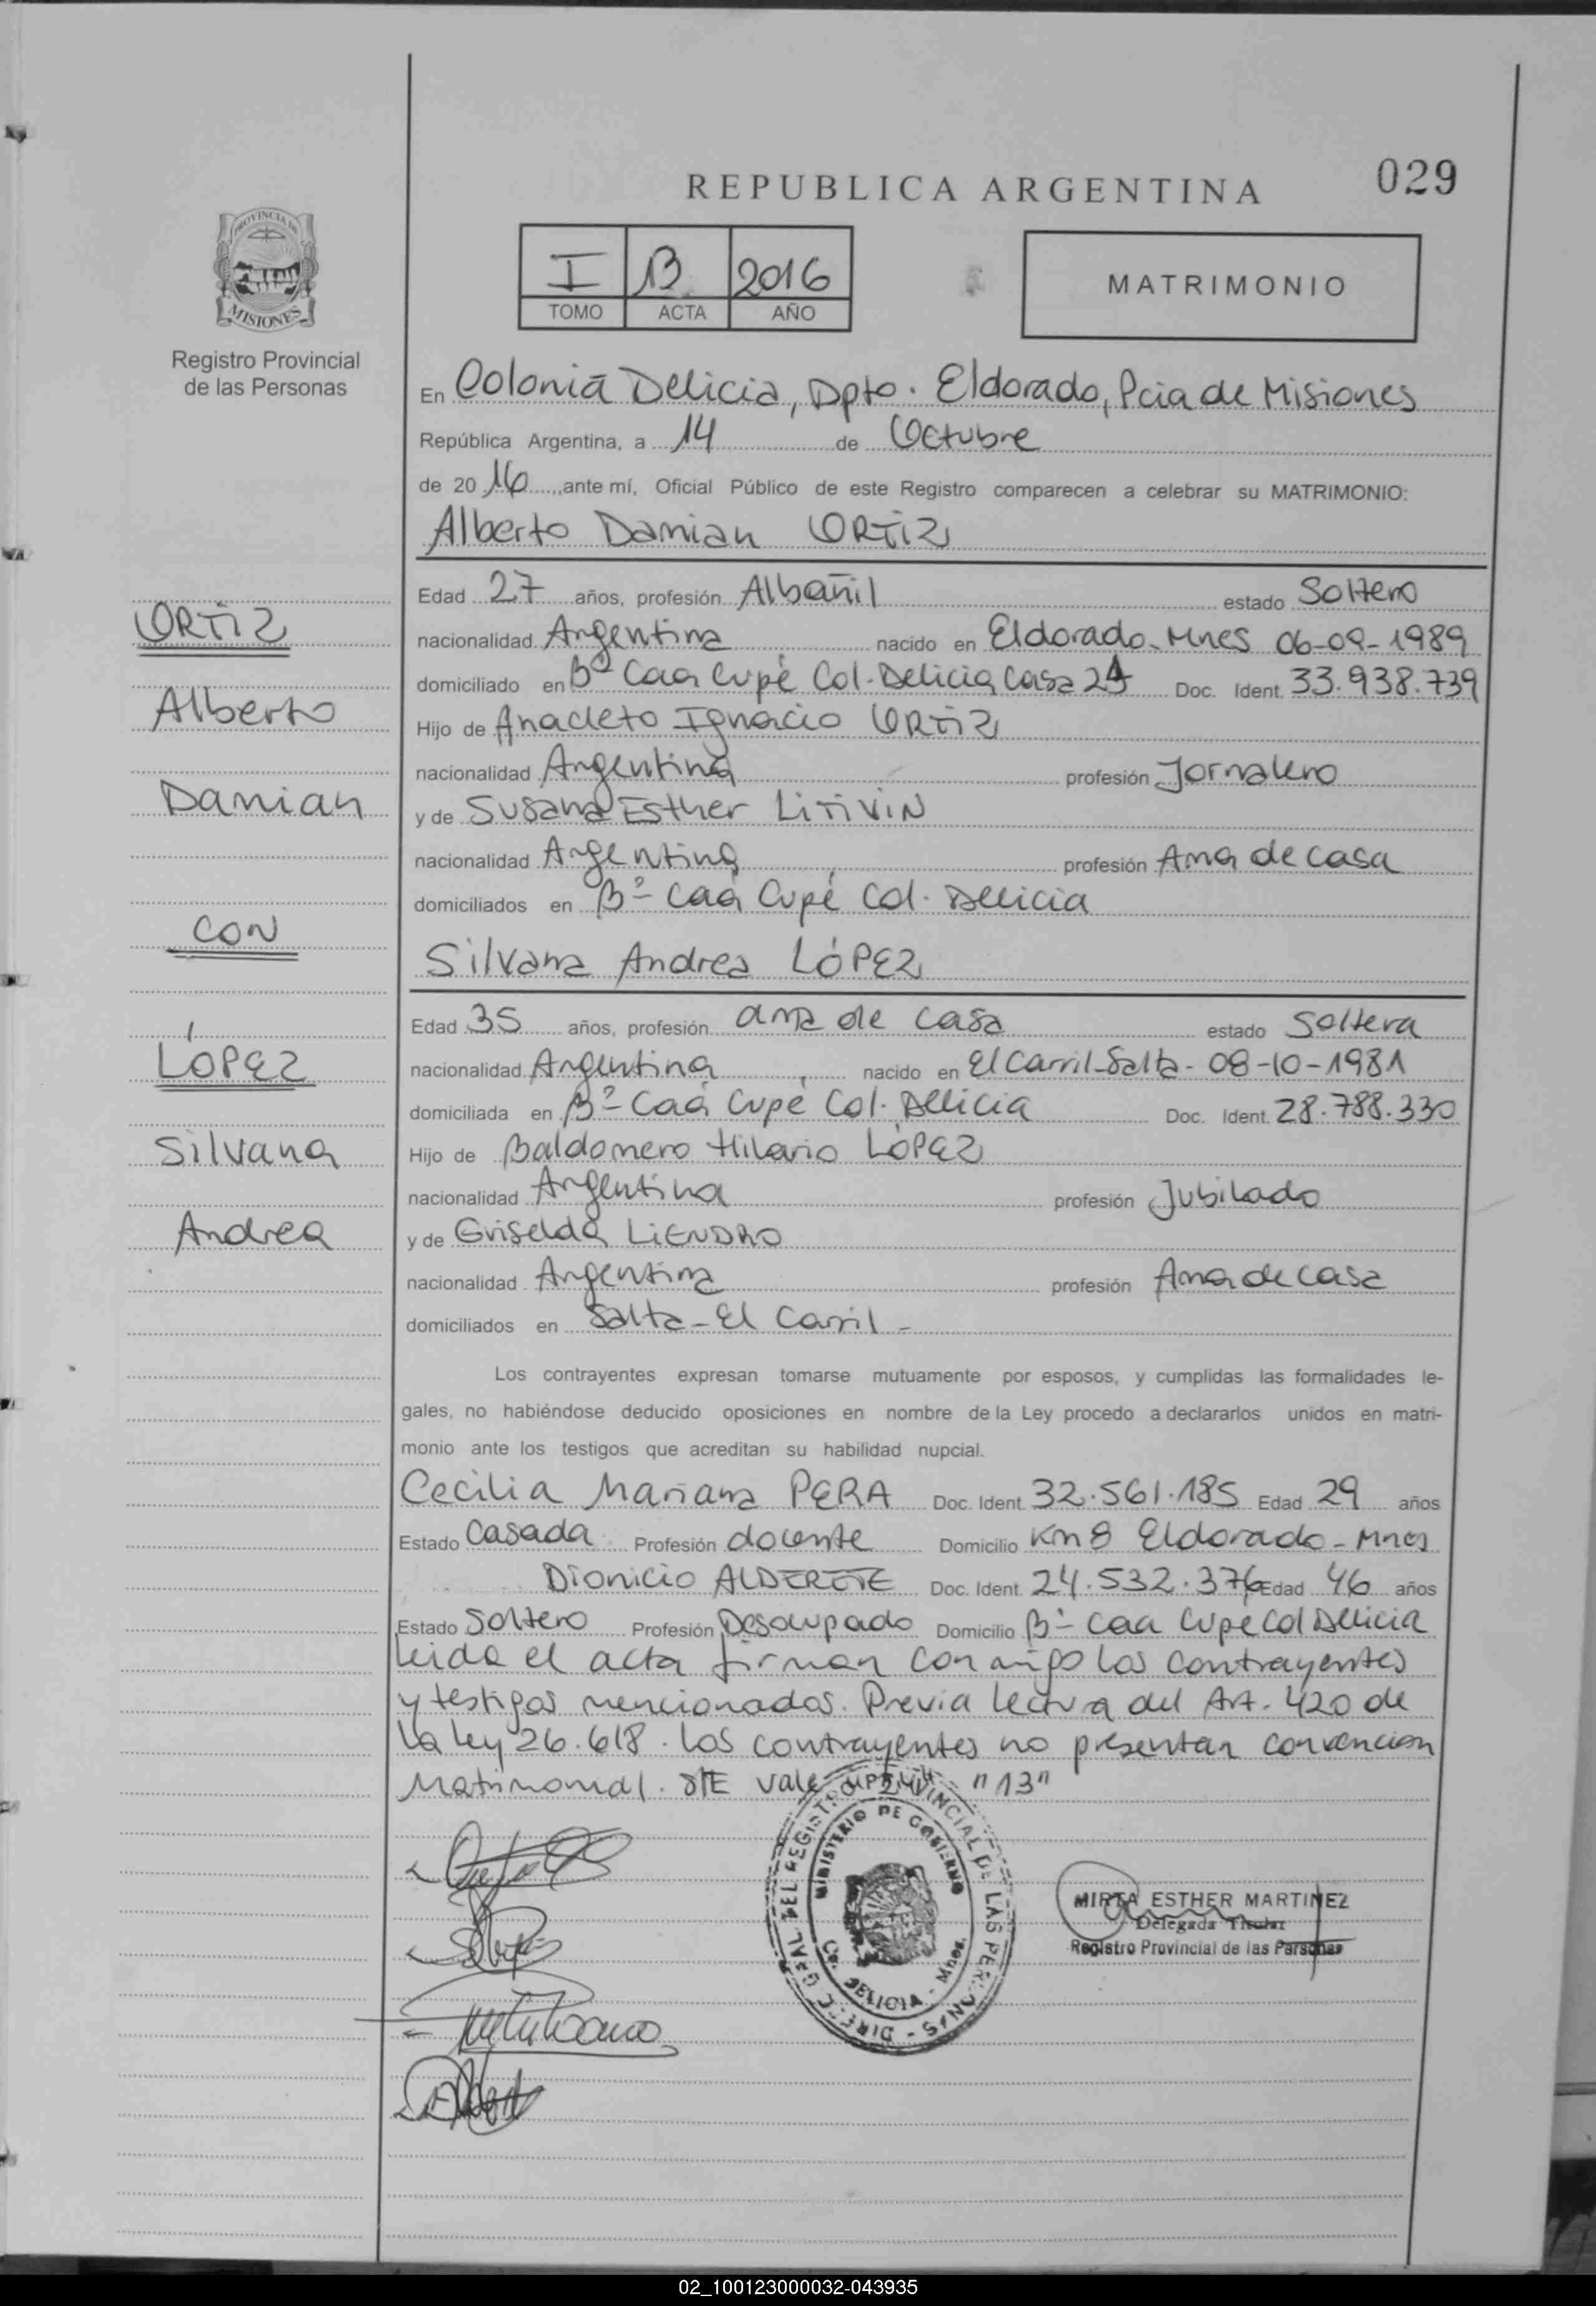 029
REPUBLICA ARGENTINA
PROVINCIA DE
MISIONES
Registro Provincial
de las Personas
I 13 2016
TOMO ACTA AÑO
MATRIMONIO
En Colonia Delicia, Dpto. Eldorado, Pcia de Misiones
República Argentina, a 14 de Octubre
de 20 16, ante mí, Oficial Público de este Registro comparecen a celebrar su MATRIMONIO:
Alberto Damian ORTIZ
Edad 27 años, profesión Albañil estado Soltero
ORTIZ
nacionalidad Argentina nacido en Eldorado-Mnes 06-09-1989
domiciliado en Bº Caá Cupé Col. Delicia Casa 24 Doc. Ident. 33.938.739
Alberto
Hijo de Anacleto Ignacio ORTIZ
nacionalidad Argentina profesión Jornalero
Damian
y de Susana Esther LITIVIN
nacionalidad Argentina profesión Ama de casa
domiciliados en Bº Caá Cupé Col. Delicia
CON
Silvana Andrea LÓPEZ
Edad 35 años, profesión ama de casa estado Soltera
LÓPEZ
nacionalidad Argentina nacido en El Carril-Salta- 08-10-1981
domiciliada en Bº Caá Cupé Col. Delicia Doc. Ident. 28.788.330
Silvana
Hijo de Baldomero Hilario LÓPEZ
nacionalidad Argentina profesión Jubilado
Andrea
y de Griselda LIENDRO
nacionalidad Argentina profesión Ama de casa
domiciliados en Salta-El Carril-
Los contrayentes expresan tomarse mutuamente por esposos, y cumplidas las formalidades le-
gales, no habiéndose deducido oposiciones en nombre de la Ley procedo a declararlos unidos en matri-
monio ante los testigos que acreditan su habilidad nupcial.
Cecilia Mariana PERA Doc. Ident. 32.561.185 Edad 29 años
Estado Casada Profesión docente Domicilio Km 8 Eldorado-Mnes
Dionicio ALDERETE Doc. Ident. 24.532.376 Edad 46 años
Estado Soltero Profesión Desocupado Domicilio Bº Caa Cupe Col Delicia
leida el acta firman con migo los contrayentes
y testigos mencionados. Previa lectura del Art. 420 de
la ley 26.618. los contrayentes no presentan convencion
Matrimonial. S/E vale "24" "13"
DIREC. GRAL DEL REGISTRO PROVINCIAL DE LAS PERSONAS
MINISTERIO DE GOBIERNO
Co. DELICIA - Mnes.
MIRTA ESTHER MARTINEZ
Delegada Titular
Registro Provincial de las Personas
02_100123000032-043935